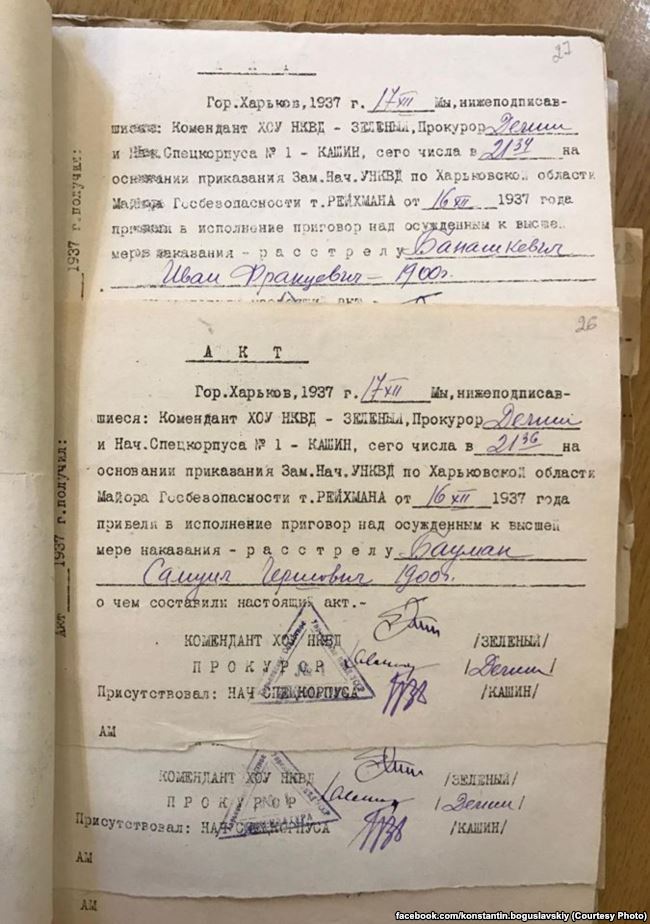 27
А К Т
Гор.Харьков, 1937 г. 17 XII Мы, нижеподписав-
шиеся: Комендант ХОУ НКВД - ЗЕЛЕНЫЙ, Прокурор
и Нач.Спецкорпуса № 1 - КАШИН, сего числа в 21 34 на
основании приказания Зам.Нач.УНКВД по Харьковской области
Майора Госбезопасности т.РЕЙХМАНА от 16 XII 1937 года
привели в исполнение приговор над осужденным к высшей
мере наказания - р а с с т р е л у Банашкевич
Иван Францевич - 1900г.
26
А К Т
Гор.Харьков, 1937 г. 17 XII Мы, нижеподписав-
шиеся: Комендант ХОУ НКВД - ЗЕЛЕНЫЙ, Прокурор
и Нач.Спецкорпуса № 1 - КАШИН, сего числа в 21 36 на
основании приказания Зам.Нач.УНКВД по Харьковской области
Майора Госбезопасности т.РЕЙХМАНА от 16 XII 1937 года
привели в исполнение приговор над осужденным к высшей
мере наказания - р а с с т р е л у Бауман
Самуил Гершович 1900г.
о чем составили настоящий акт.-
КОМЕНДАНТ ХОУ НКВД /ЗЕЛЕНЫЙ/
П Р О К У Р О Р
Присутствовал: НАЧ СПЕЦКОРПУСА /КАШИН/
АМ
КОМЕНДАНТ ХОУ НКВД /ЗЕЛЕНЫЙ/
П Р О К У Р О Р
Присутствовал: НАЧ СПЕЦКОРПУСА /КАШИН/
АМ
АМ
1937 г.получил:
Акт 1937 г.получил:
facebook.com/konstantin.boguslavskiy (Courtesy Photo)